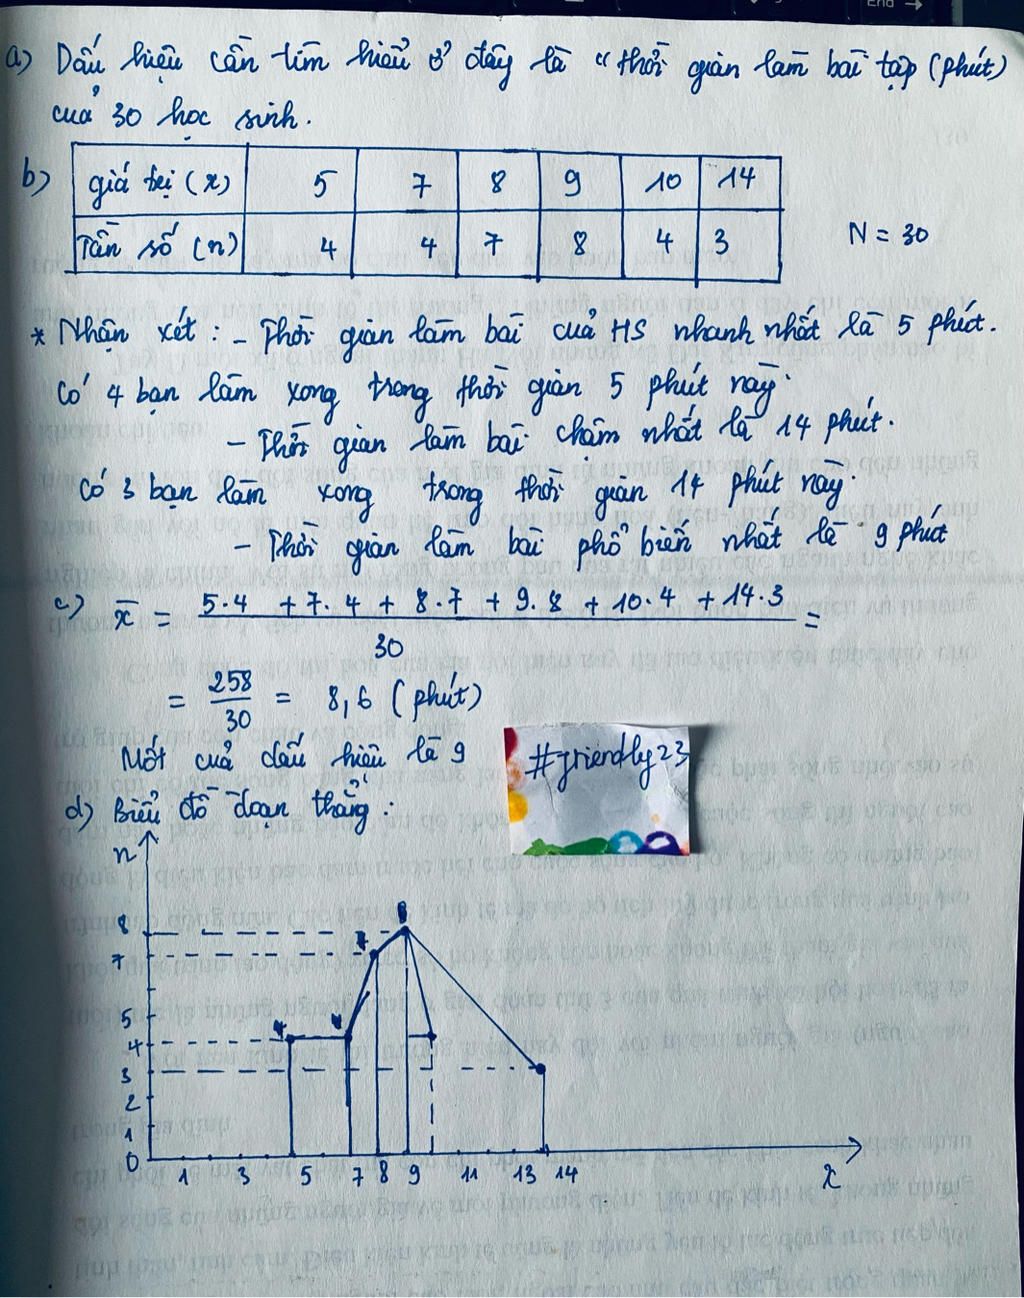 a) Dấu hiệu cần tìm hiểu ở đây là "thời gian làm bài tập (phút)
của 30 học sinh.
b) giá trị (x) 5 7 8 9 10 14
Tần số (n) 4 4 7 8 4 3 N = 30
* Nhận xét : - Thời gian làm bài của HS nhanh nhất là 5 phút.
Có 4 bạn làm xong trong thời gian 5 phút này.
- Thời gian làm bài chậm nhất là 14 phút.
Có 3 bạn làm xong trong thời gian 14 phút này.
- Thời gian làm bài phổ biến nhất là 9 phút
c) x̄ = 5.4 + 7.4 + 8.7 + 9.8 + 10.4 + 14.3 / 30 =
= 258 / 30 = 8,6 (phút)
Mốt của dấu hiệu là 9
#friendly23
d) Biểu đồ đoạn thẳng :
n
8
8
7
7
5
4
4
4
3
2
1
0
1 3 5 7 8 9 11 13 14
x
End →